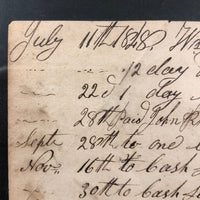 July 11th 1848
1/2 day
22d 1 day
28th Paid John R
Septr 28th to one
Novr 16th to Cash
30th to Cash